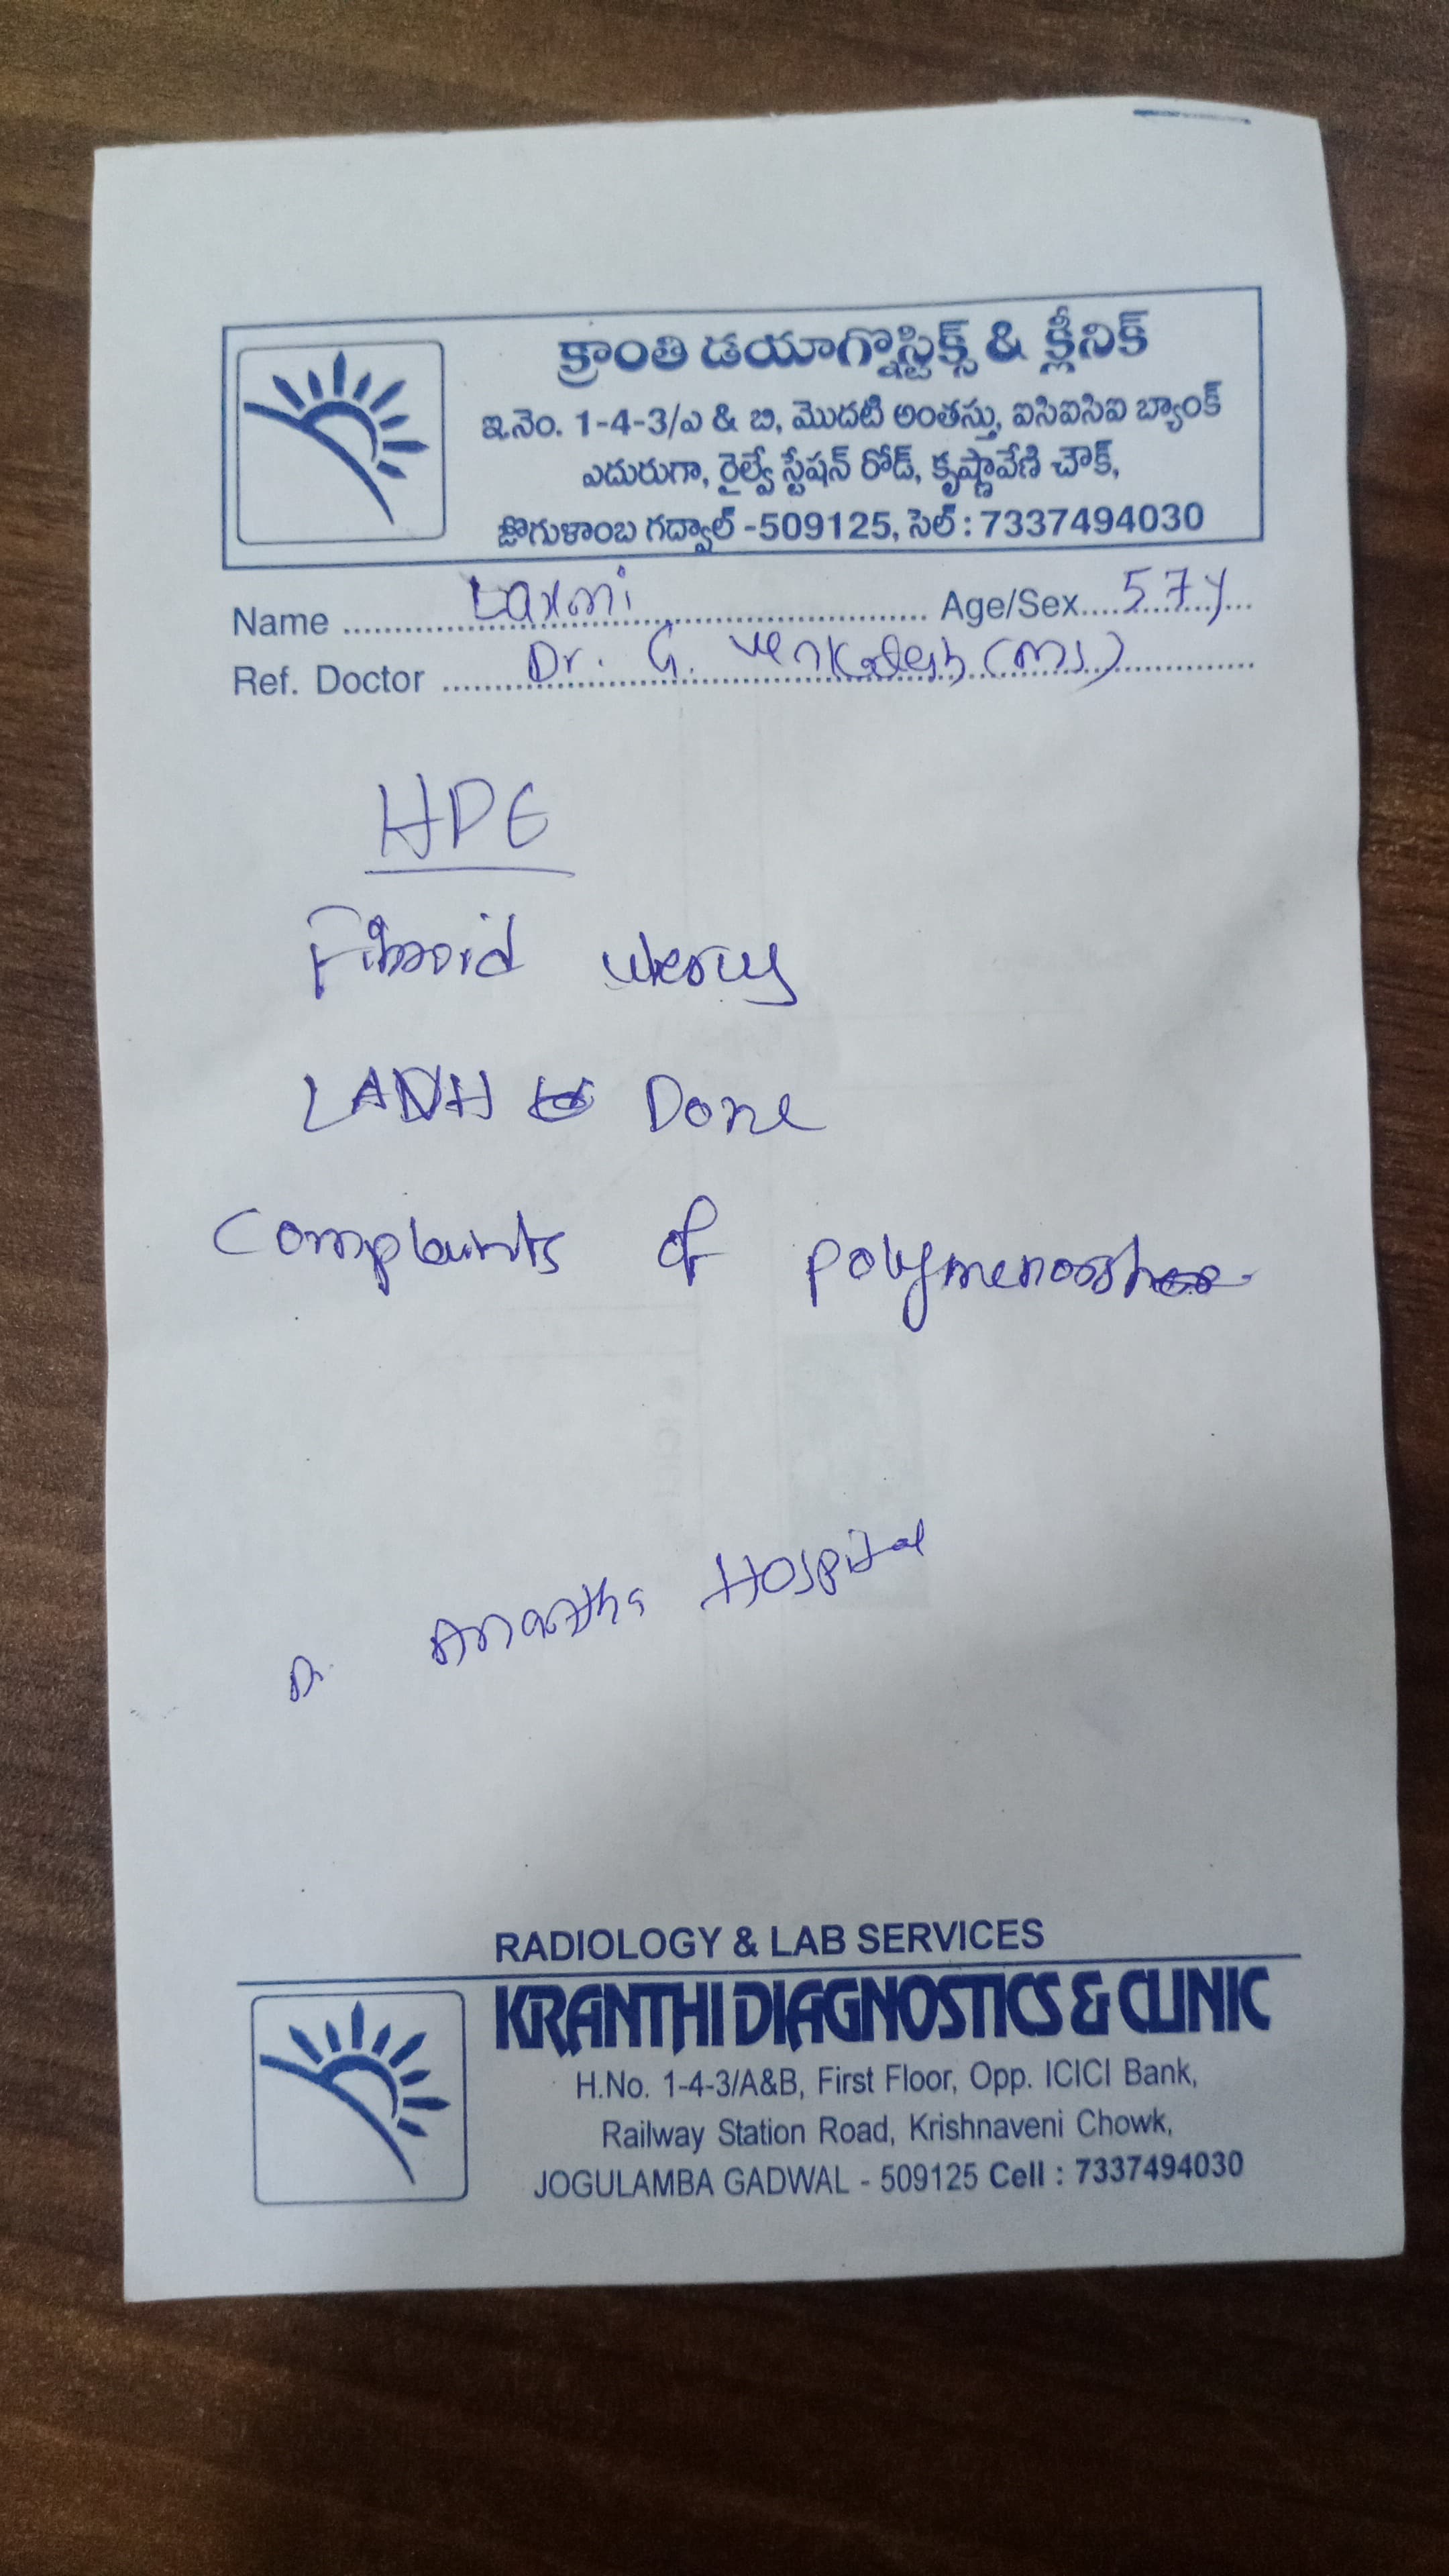 క్రాంతి డయాగ్నొస్టిక్స్ & క్లీనిక్
ఇ.నెం. 1-4-3/ఎ & బి, మొదటి అంతస్తు, ఐసిఐసిఐ బ్యాంక్
ఎదురుగా, రైల్వే స్టేషన్ రోడ్, కృష్ణావేణి చౌక్,
జొగుళాంబ గద్వాల్ -509125, సెల్ : 7337494030
Name Laxmi Age/Sex 57y
Ref. Doctor Dr. G. Venkatesh (MS)
HPE
Fibroid uterus
Done
Complaints of
Hospital
RADIOLOGY & LAB SERVICES
KRANTHI DIAGNOSTICS & CLINIC
H.No. 1-4-3/A&B, First Floor, Opp. ICICI Bank,
Railway Station Road, Krishnaveni Chowk,
JOGULAMBA GADWAL - 509125 Cell : 7337494030